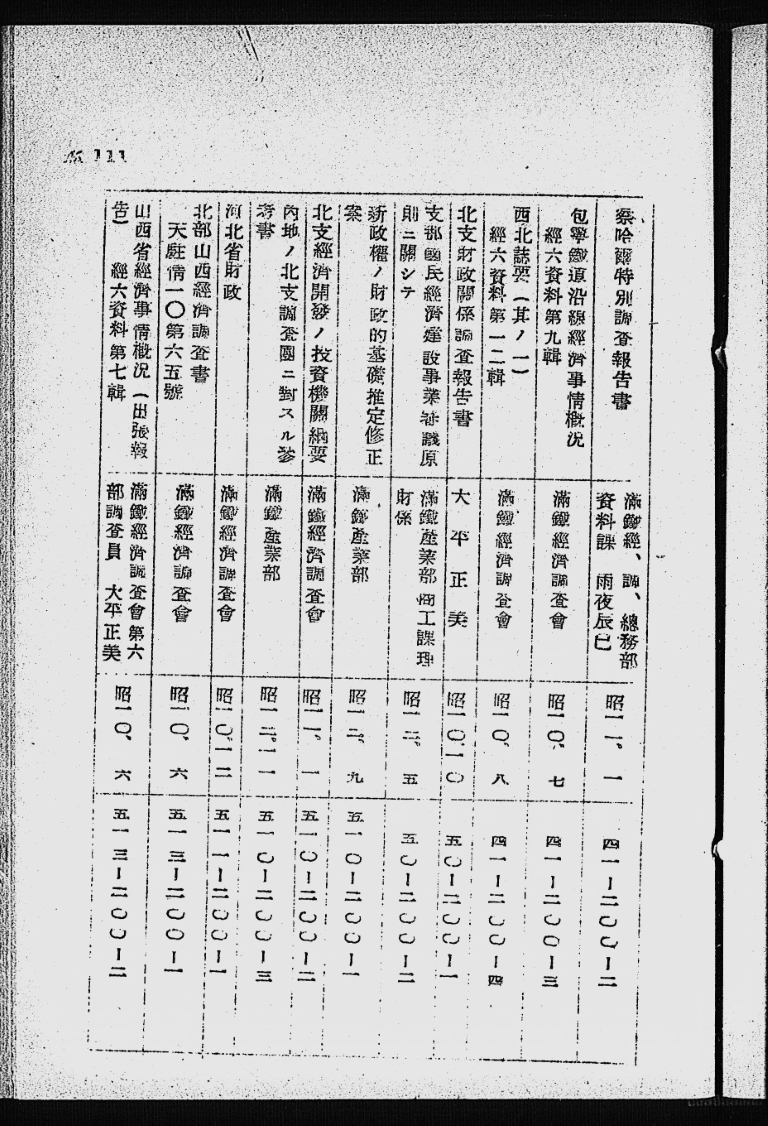 111
察哈爾特別調査報告書
滿鐵經、調、總務部
資料課 雨夜辰巳
昭一一、一
四一ー二〇〇ー二
包寧鐵道沿線經濟事情概況
經六資料第九輯
滿鐵經濟調査會
昭一〇、七
四一ー二〇〇ー三
西北誌要(其ノ一)
經六資料第一二輯
滿鐵經濟調査會
昭一〇、八
四一ー二〇〇ー四
北支財政關係調査報告書
大平正美
昭一〇、一〇
五〇ー二〇〇ー一
支那國民經濟建設事業 原
則ニ關シテ
滿鐵産業部商工課理
財係
昭一二、五
五〇ー二〇〇ー二
新政權ノ財政的基礎推定修正
案
滿鐵産業部
昭一二、九
五一〇ー二〇〇ー一
北支經濟開發ノ投資機關綱要
滿鐵經濟調査會
昭一一、一
五一〇ー二〇〇ー二
内地ノ北支調査團ニ對スル參
考書
滿鐵産業部
昭一二、一一
五一〇ー二〇〇ー三
河北省財政
滿鐵經濟調査會
昭一〇、一二
五一一ー二〇〇ー一
北部山西經濟調査書
天駐情一〇第六五號
滿鐵經濟調査會
昭一〇、六
五一三ー二〇〇ー一
山西省經濟事情概況(出張報
告) 經六資料第七輯
滿鐵經濟調査會第六
部調査員 大平正美
昭一〇、六
五一三ー二〇〇ー二